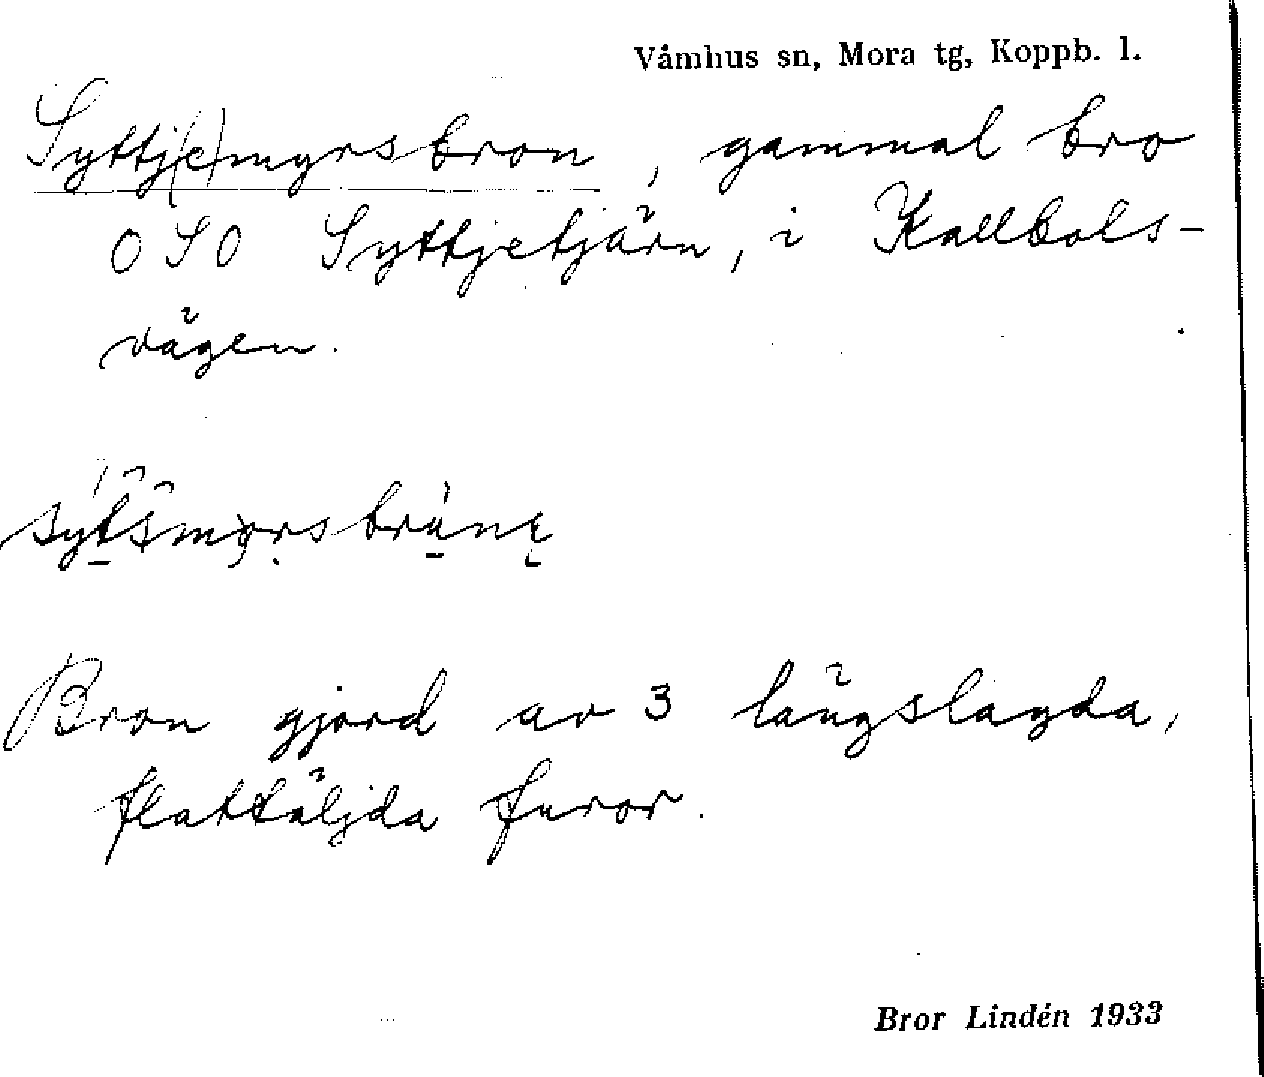 Våmhus sn, Mora tg, Koppb. l.
Syttj(e)myrsbron, gammal bro
OSO Syttjetjärn, i Kallbols-
vägen.
Bron gjord av 3 långslagda,
flattäljda furor.
Bror Lindén 1933